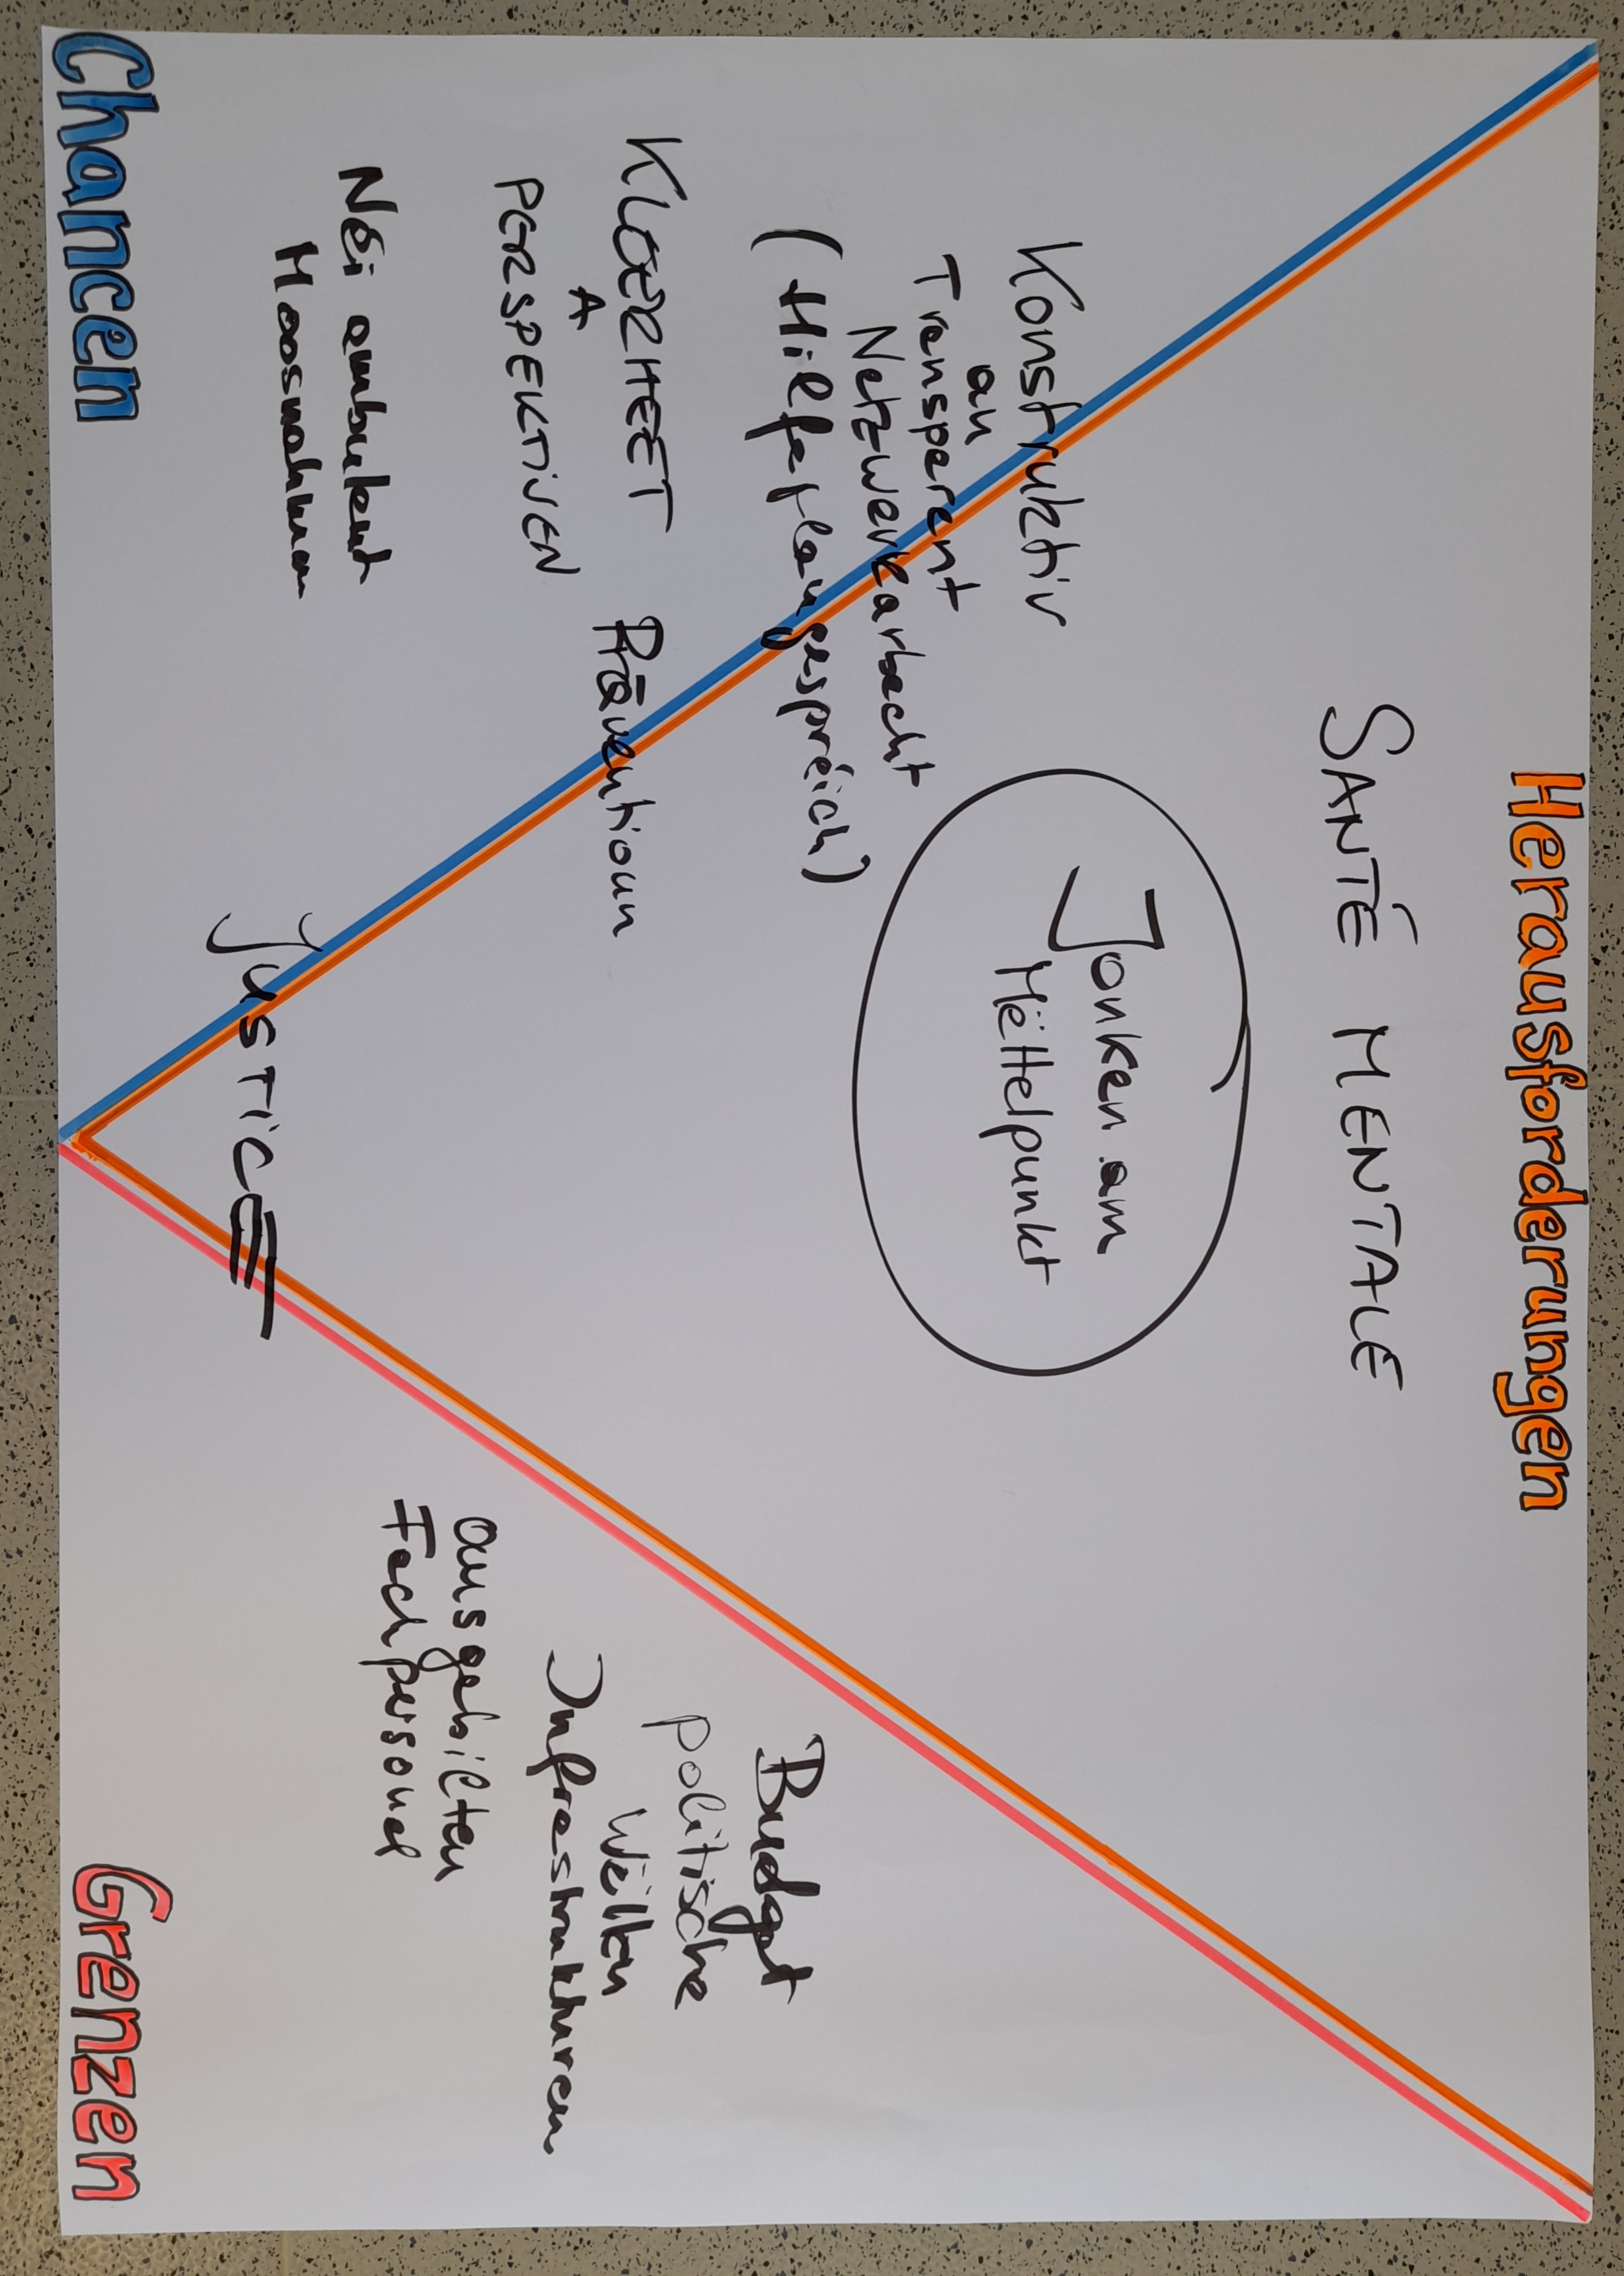 Herausforderungen
SANTÉ MENTALE
Jonken am
Mëttelpunkt
Konstruktiv
an
Transparent
Netzwerkarbecht
(Hilfeplangespréich)
KLOERHEET
A
PERSPEKTIVEN
Präventioun
Néi ambulant
Moosnahmen
JUSTICE
Chancen
Budget
politische
Wëllen
Infrastrukturen
ausgebilten
Fachpersonal
Grenzen